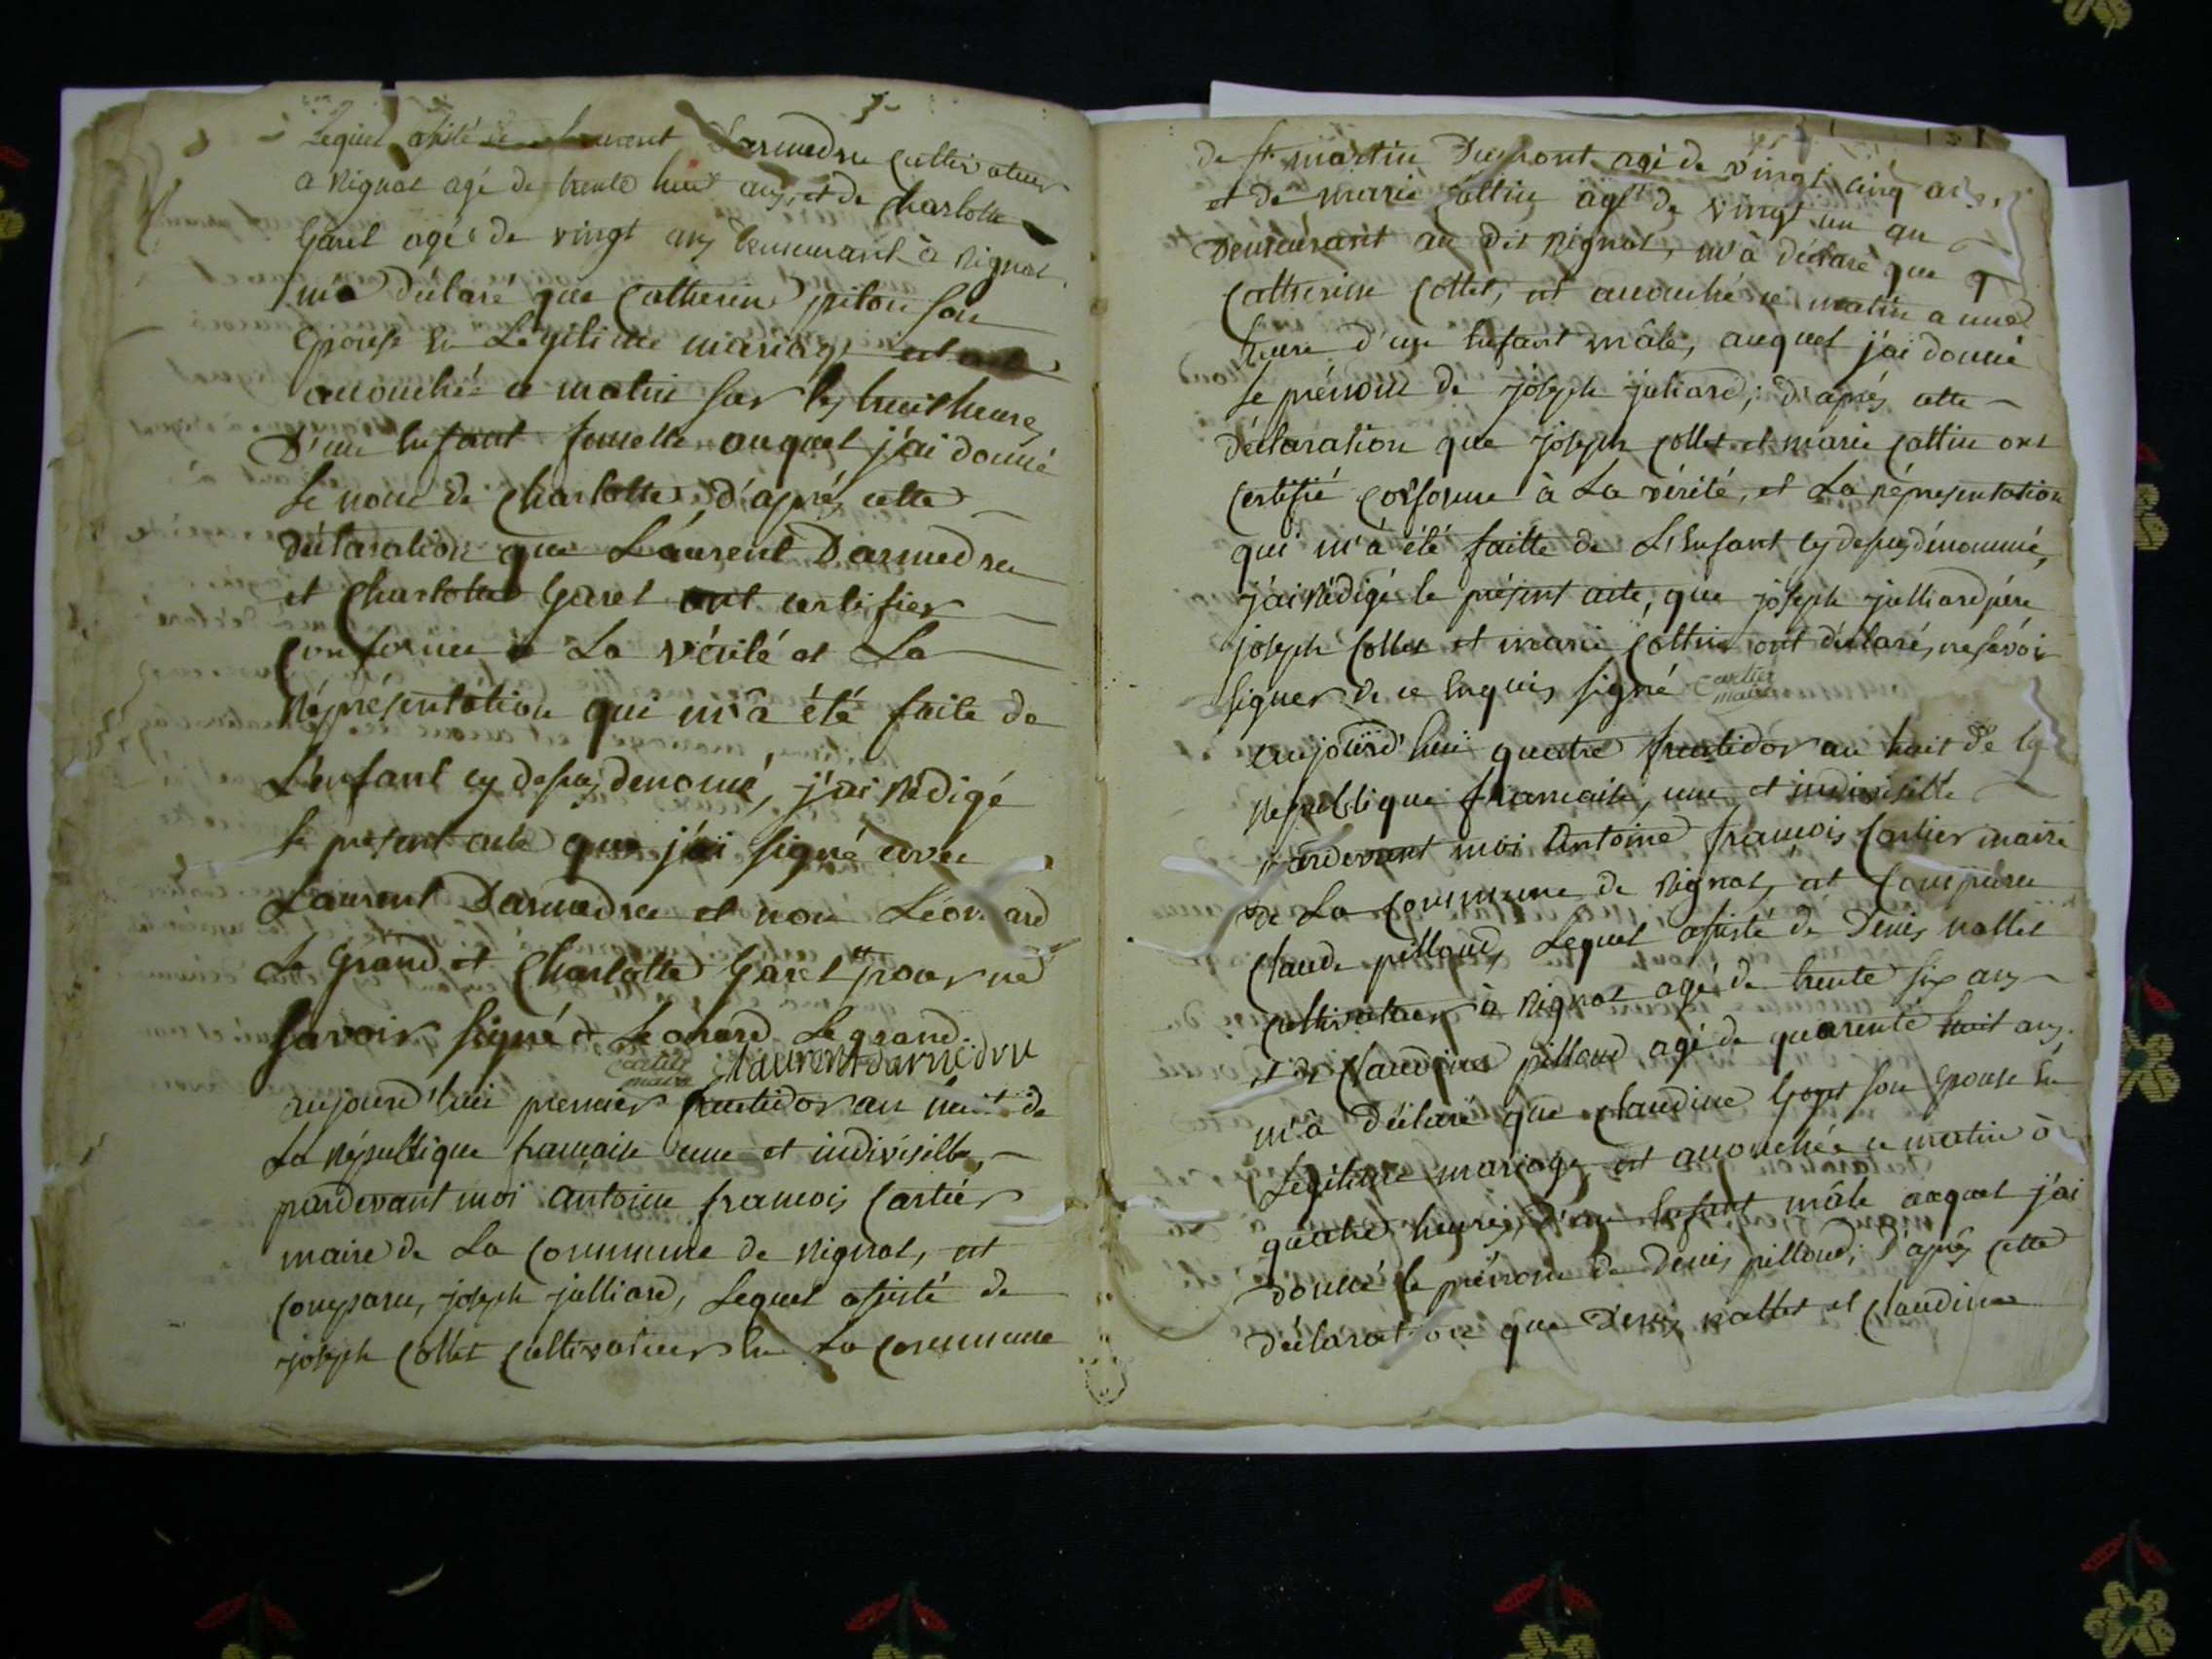 Lequel assisté de Laurent Darmedru cultivateur
a Rignat agé de trente huit ans, et de Charlotte
Garel agée de vingt ans demeurant à Rignat
m'a déclaré que Catherine pitou son
Epouse En Légitime mariage
accouchée ce matin sur les huit heures
D'un Enfant femelle auquel j'ai donné
Le nom de Charlotte d'après cette
déclaration que Laurent Darmedru
et Charlotte Garel ont certifier
Conforme a La vérité et La
Réprésentation qui m'a été faite de
L'enfant cy dessus denomé, j'ai Rédigé
Le present acte que j'ai signé avec
Laurent Darmedru et non Léonard
Le Grand et Charlotte Garel pour ne
savoir signé Leonard Le grand
Cartier maire Laurent darmedru
aujourd'hui premier fructidor an huit de
La République francaise une et indivisible,
pardevant moi antoine francois Cartier
maire de La Commune de Rignat, est
Comparu, joseph julliard, Lequel assisté de
joseph Collet Cultivateur En La Commune
de St martin Dumont agé de vingt cinq ans,
et de marie Cottin agée de vingt un an
Demeurant au dit Rignat, m'à déclaré que
Catherine Collet, est accouchée ce matin a une
heure d'un Enfant mâle, auquel j'ai donné
Le prénom de joseph juliard; d'après cette
déclaration que joseph Collet et marie Cottin ont
Certifié Conforme à La vérité, et La réprésentation
qui m'à été faitte de L'Enfant cy dessus dénommé,
j'ai Rédigé le présent acte, que joseph julliard père
joseph Collet et marie Cottin ont déclaré, ne savoir
signer de ce Enquis signé Cartier maire
aujourd'hui quatre fructidor an huit de la
Republique francaise, une et indivisible
pardevant moi Antoine françois Cartier maire
de La Commune de Rignat, est Comparu
Claude pilloud, Lequel assisté de Denis nallet
Cultivateur à Rignat agé de trente six ans
et de Claudine pilloud agé de quarente huit ans,
m'à déclaré que Claudine Goyet son Epouse En
Légitime mariage est accouchée ce matin à
quatre heures, d'un Enfant mâle auquel j'ai
donné le prénom de Denis pilloud; d'après Cette
déclaration que Denis nallet et Claudine